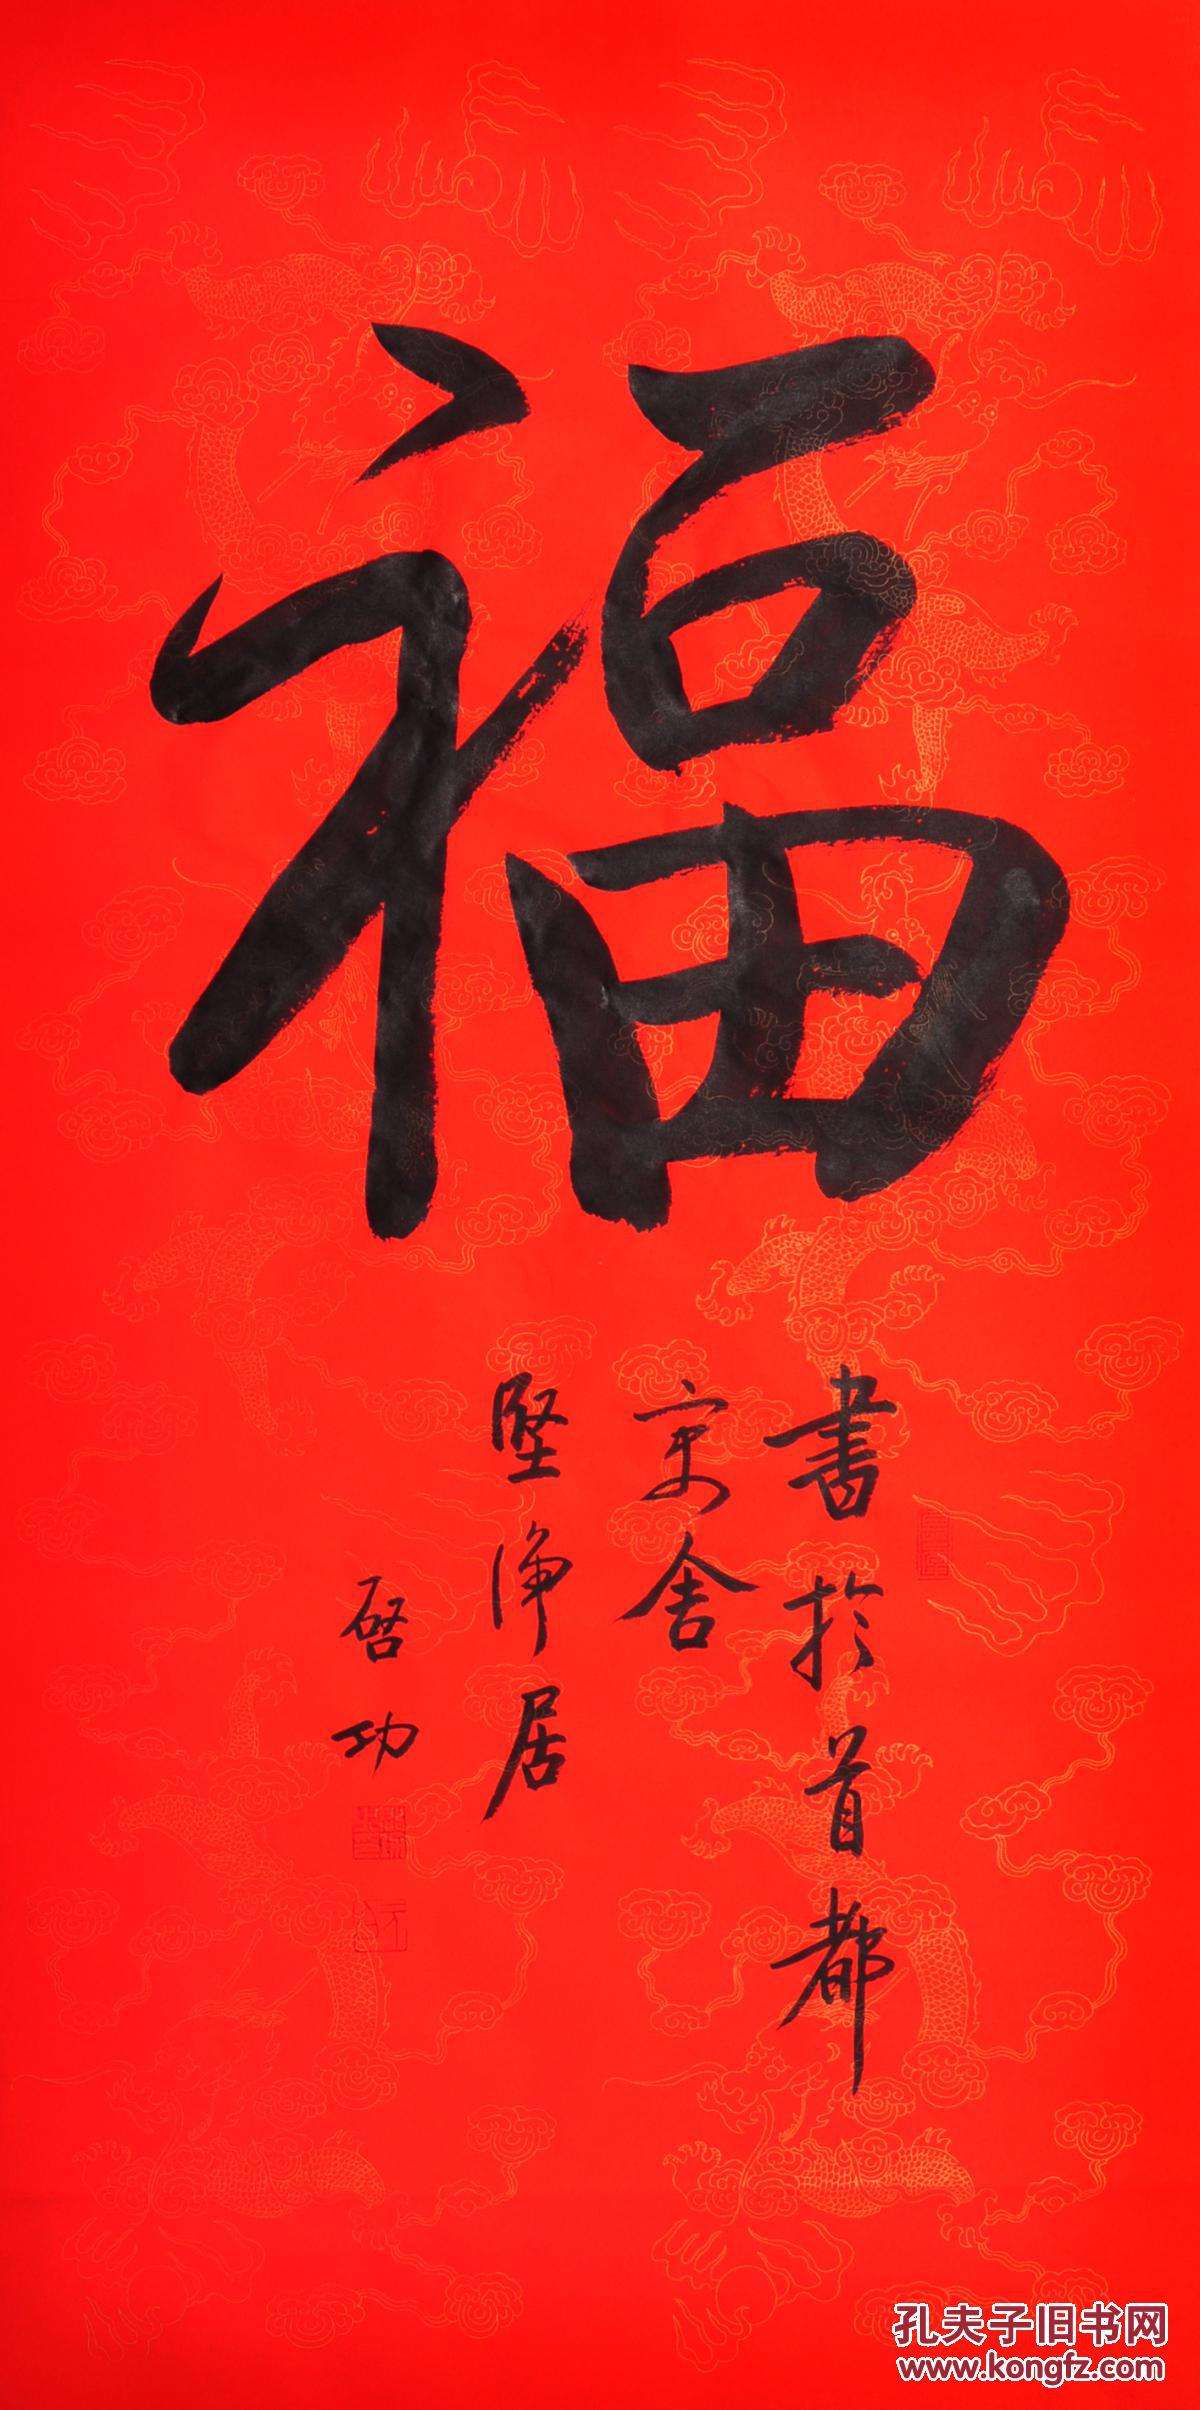 福
書於首都
堅净居
啓功
孔夫子旧书网
www.kongfz.com